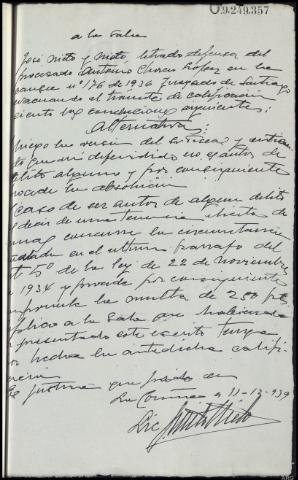 O.9.249.357
a la Sala
José Nieto y Nieto, letrado defensor del
procesado Antonio Chorén López en la
causa nº 176 de 1936 Juzgado de Santiago
evacuando el trámite de calificación
siento las conclusiones siguientes:
Alternativa:
Niego la versión del Fiscal y
que mi defendido no es autor de
delito alguno y por consiguiente
procede la absolución
caso de ser autor de algun delito
de una tenencia ilícita de
arma concurre la circunstancia
en el ultimo parrafo del
de la ley de 22 de Noviembre
1934 y procede por consiguiente
la multa de 250 pts
Suplico a la Sala que habiendo
presentado este escrito tenga
por hecha la antedicha califi-
cación
Es justicia que pido en
La Coruña a 11-12-939
Lic. J. Nieto Nieto